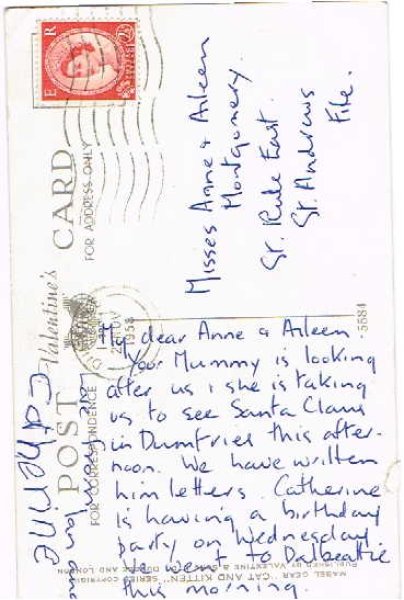 E R
POST CARD
Valentine's
FOR ADDRESS ONLY
FOR CORRESPONDENCE
NOV
1958
Misses Anne & Aileen
Montgomery.
St. Rule East.
St. Andrews
Fife.
5584
My dear Anne & Aileen.
Your Mummy is looking
after us & she is taking
us to see Santa Claus
in Dumfries this after-
noon. We have written
him letters. Catherine
is having a birthday
party on Wednesday.
We went to Dalbeattie
this morning.
Catherine
MABEL GEAR "CAT AND KITTEN" SERIES COPYRIGHT
PUBLISHED BY VALENTINE & SONS LTD DUNDEE AND LONDON